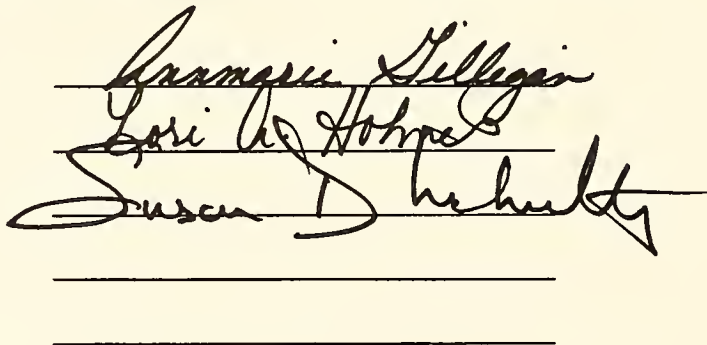 Annmarie Gilligan
Lori A. Holmes
Susan D